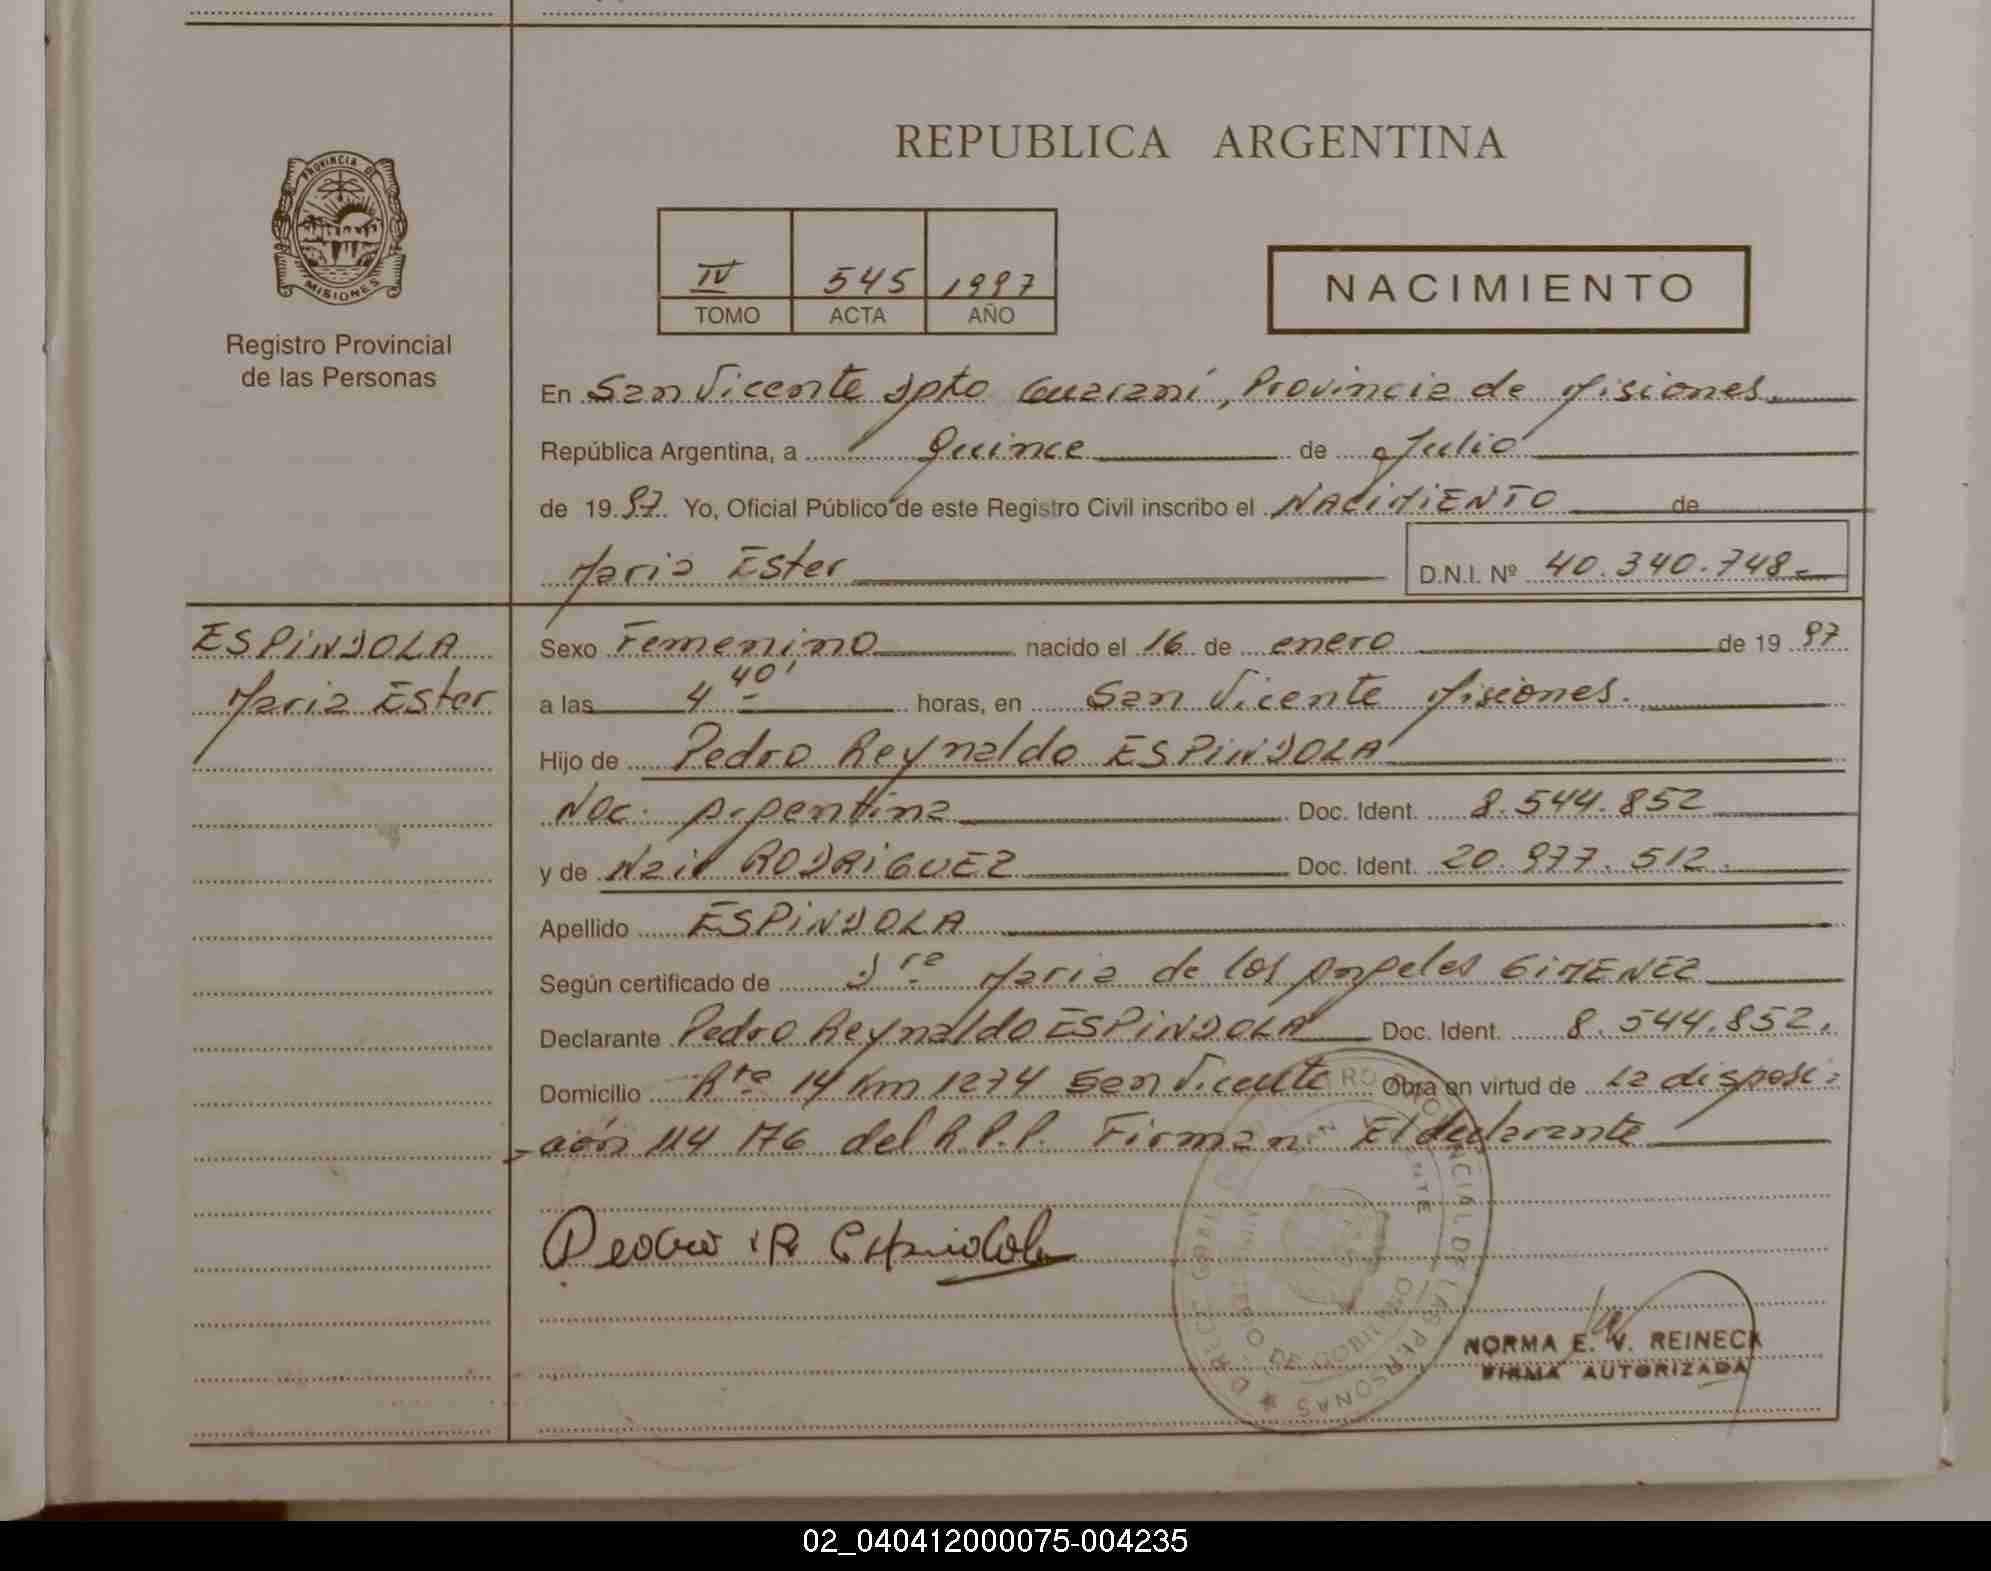 REPUBLICA ARGENTINA
PROVINCIA DE
MISIONES
Registro Provincial
de las Personas
IV 545 1997
TOMO ACTA AÑO
NACIMIENTO
En San Vicente Dpto Guaraní, Provincia de Misiones
República Argentina, a Quince de Julio
de 19 97 Yo, Oficial Público de este Registro Civil inscribo el NACIMIENTO de
Maria Ester D.N.I. Nº 40.340.748
ESPINDOLA
Maria Ester
Sexo Femenino nacido el 16 de enero de 19 97
a las 4 40' horas, en San Vicente Misiones.
Hijo de Pedro Reynaldo ESPINDOLA
Nac. Argentina Doc. Ident. 8.544.852
y de RODRIGUEZ Doc. Ident. 20.977.512.
Apellido ESPINDOLA
Según certificado de Dra Maria de los Angeles GIMENEZ
Declarante Pedro Reynaldo ESPINDOLA Doc. Ident. 8.544.852.
Domicilio Rta 14 Km 1274 San Vicente Obra en virtud de la disposi
ción 114 176 del R.P.P. Firman El declarante
Pedro R Espindola
PROVINCIAL DE LAS PERSONAS
NORMA E. V. REINECK
FIRMA AUTORIZADA
02_040412000075-004235